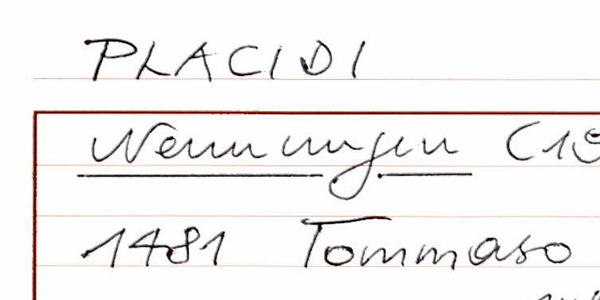 PLACIDI
Nennungen (19
1481 Tommaso